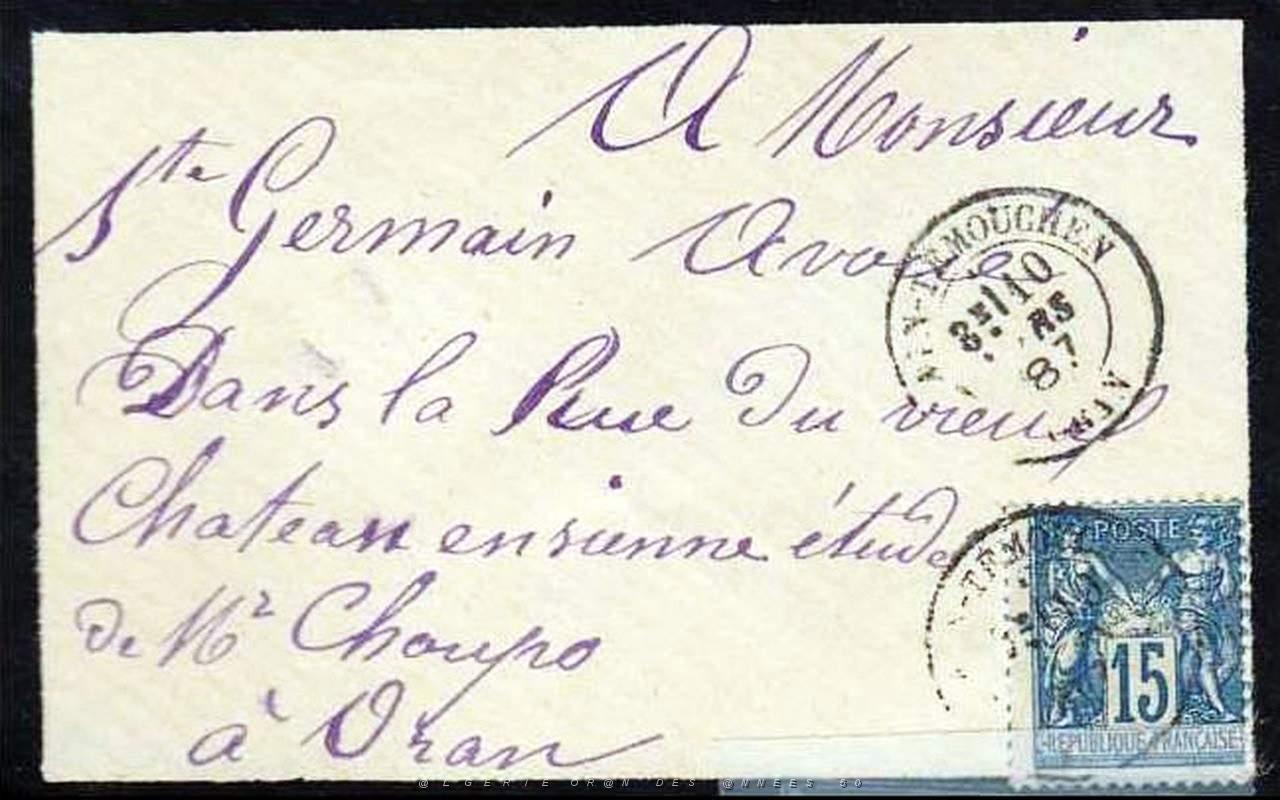 A Monsieur
Ste Germain Avoué
Dans la Rue du vieux
Chateau ensienne étude
de Mr Choupo
à Oran
AIN-TEMOUCHEN
3E 10
RS
87
N-TÉM
POSTE
15
REPUBLIQUE FRANÇAISE
@LGERIE OR@N DES @NNEES 50